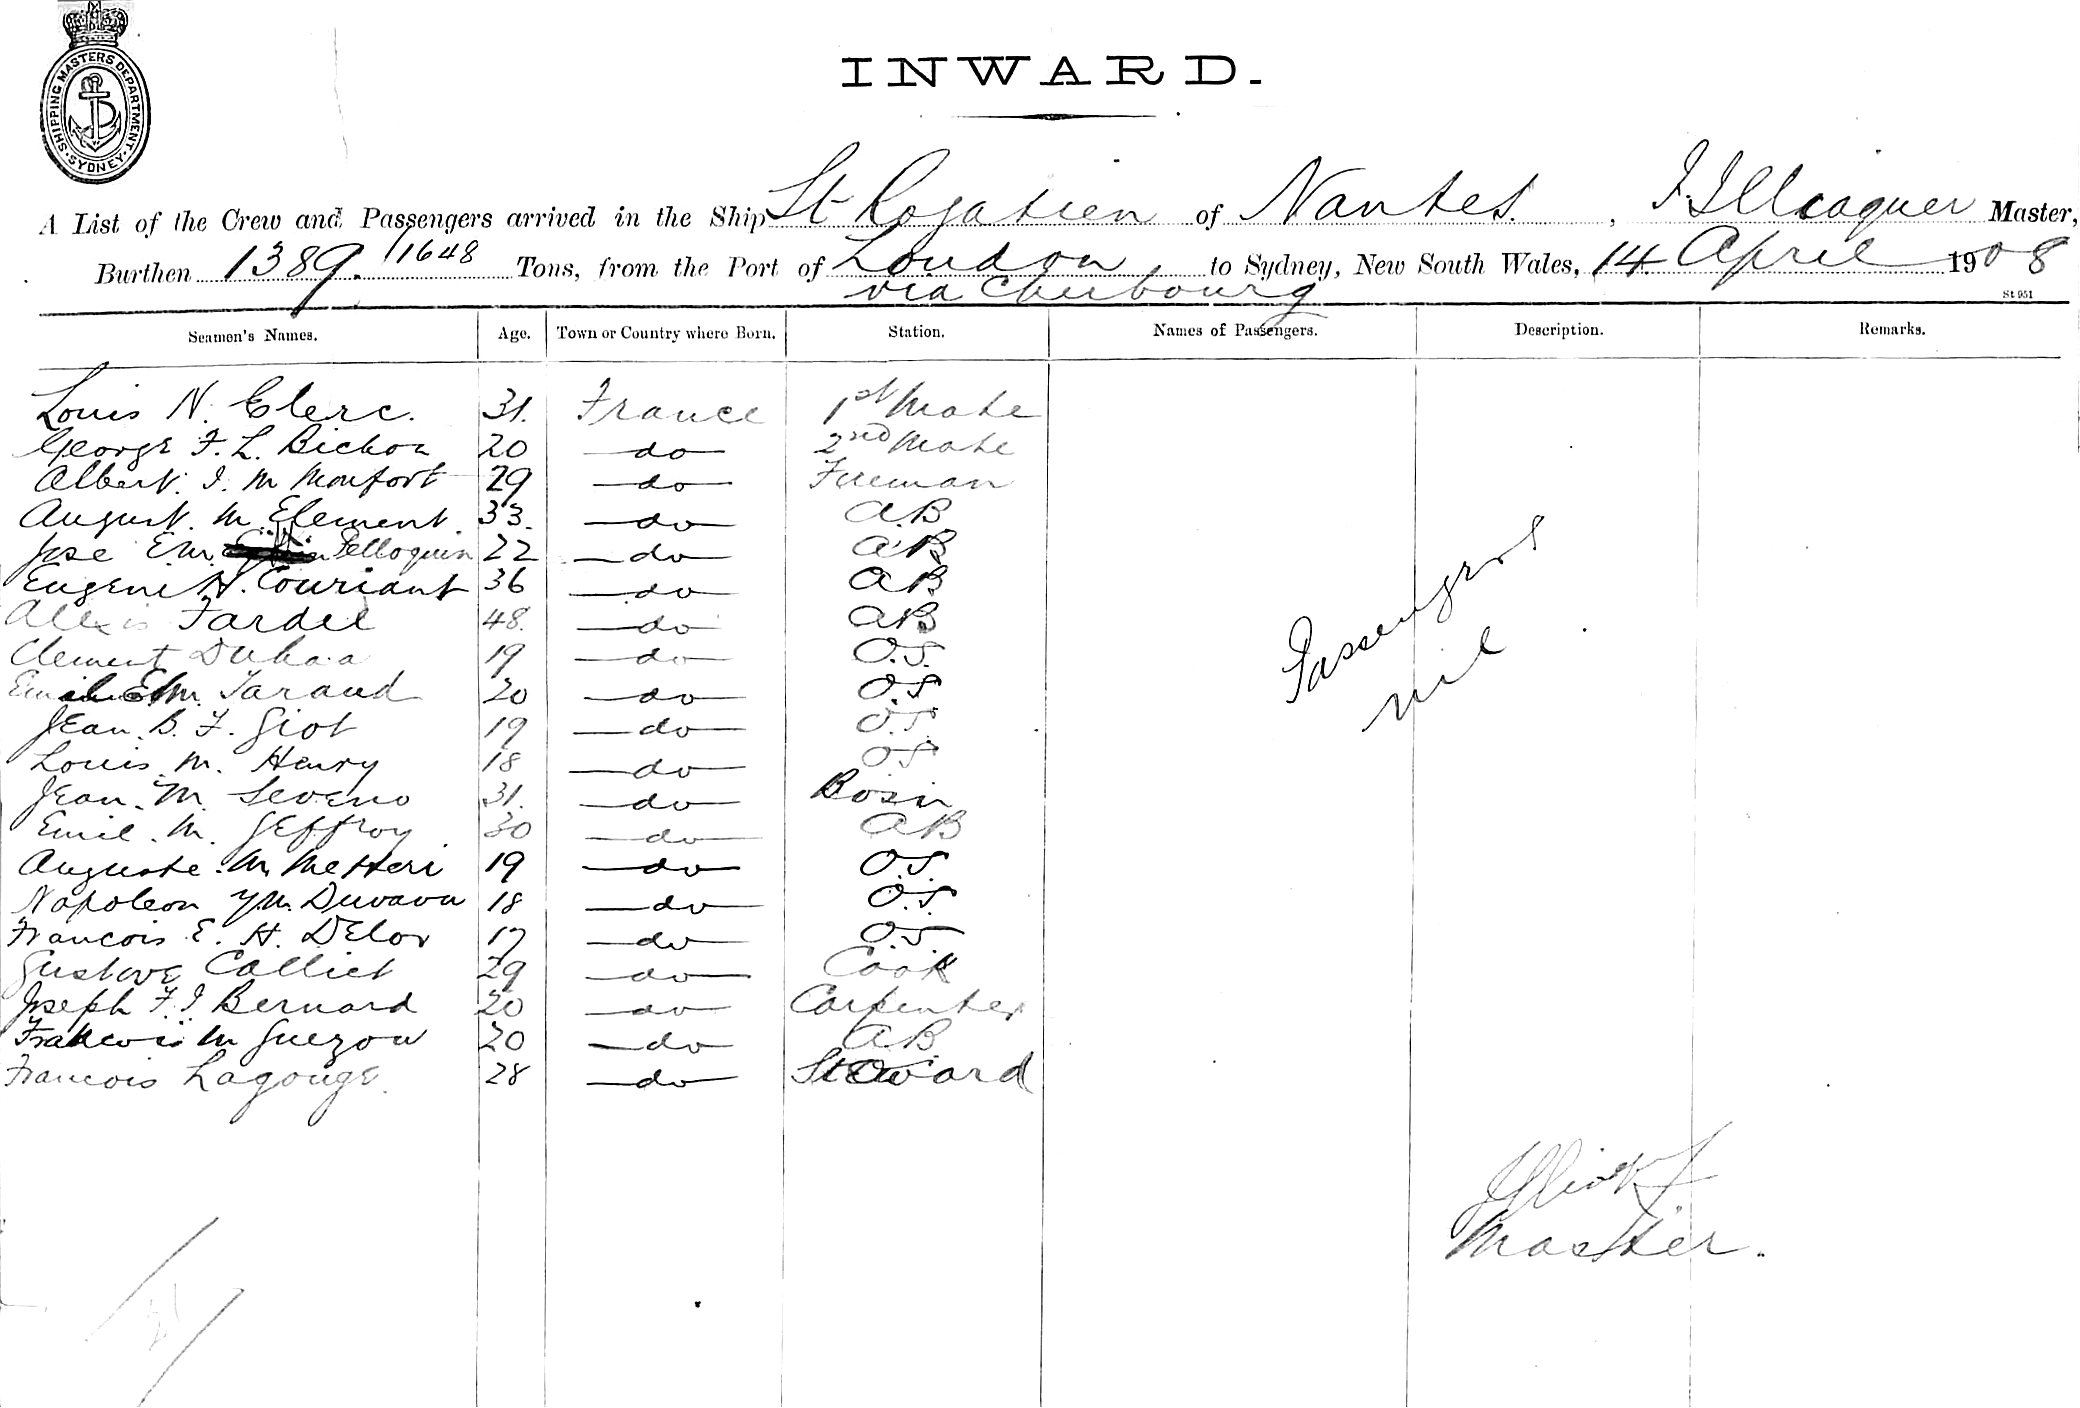 SHIPPING MASTERS DEPARTMENT SYDNEY
INWARD.
A List of the Crew and Passengers arrived in the Ship St Rogatien of Nantes, Master,
Burthen 1389. / 1648 Tons, from the Port of London to Sydney, New South Wales, 14 April 1908
via Cherbourg
St 951
Seamen's Names. Age. Town or Country where Born. Station. Names of Passengers. Description. Remarks.
Louis N. Clerc. 31. France 1st Mate
George F. L. Bichon 20 do 2nd Mate
Albert. I. M Monfort 29 do Fireman
August. M. Element. 33. do A.B
Jose E.M. Felloquin 22 do AB
Eugene H. Couriant 36 do AB
Alexis Tardel 48. do AB
Clement 19 do O.S.
Emil E M. Taraud 20 do O.S
Jean. B. F. Giot 19 do O.S.
Louis. M. Henry 18 do OS
Jean. M. Seveno 31. do Bosin
Emil. M. Geffroy 30 do AB
Auguste. M. 19 do O.S.
Napoleon 18 do O.S.
Francois E. H. DElor 17 do O.S
Gustave Calliet 29 do Cook
Joseph F. I Bernard 20 do Carpenter
Francois M Guezou 20 do AB.
Francois Lagouge. 28 do Steward
Passengers
nil
Master.